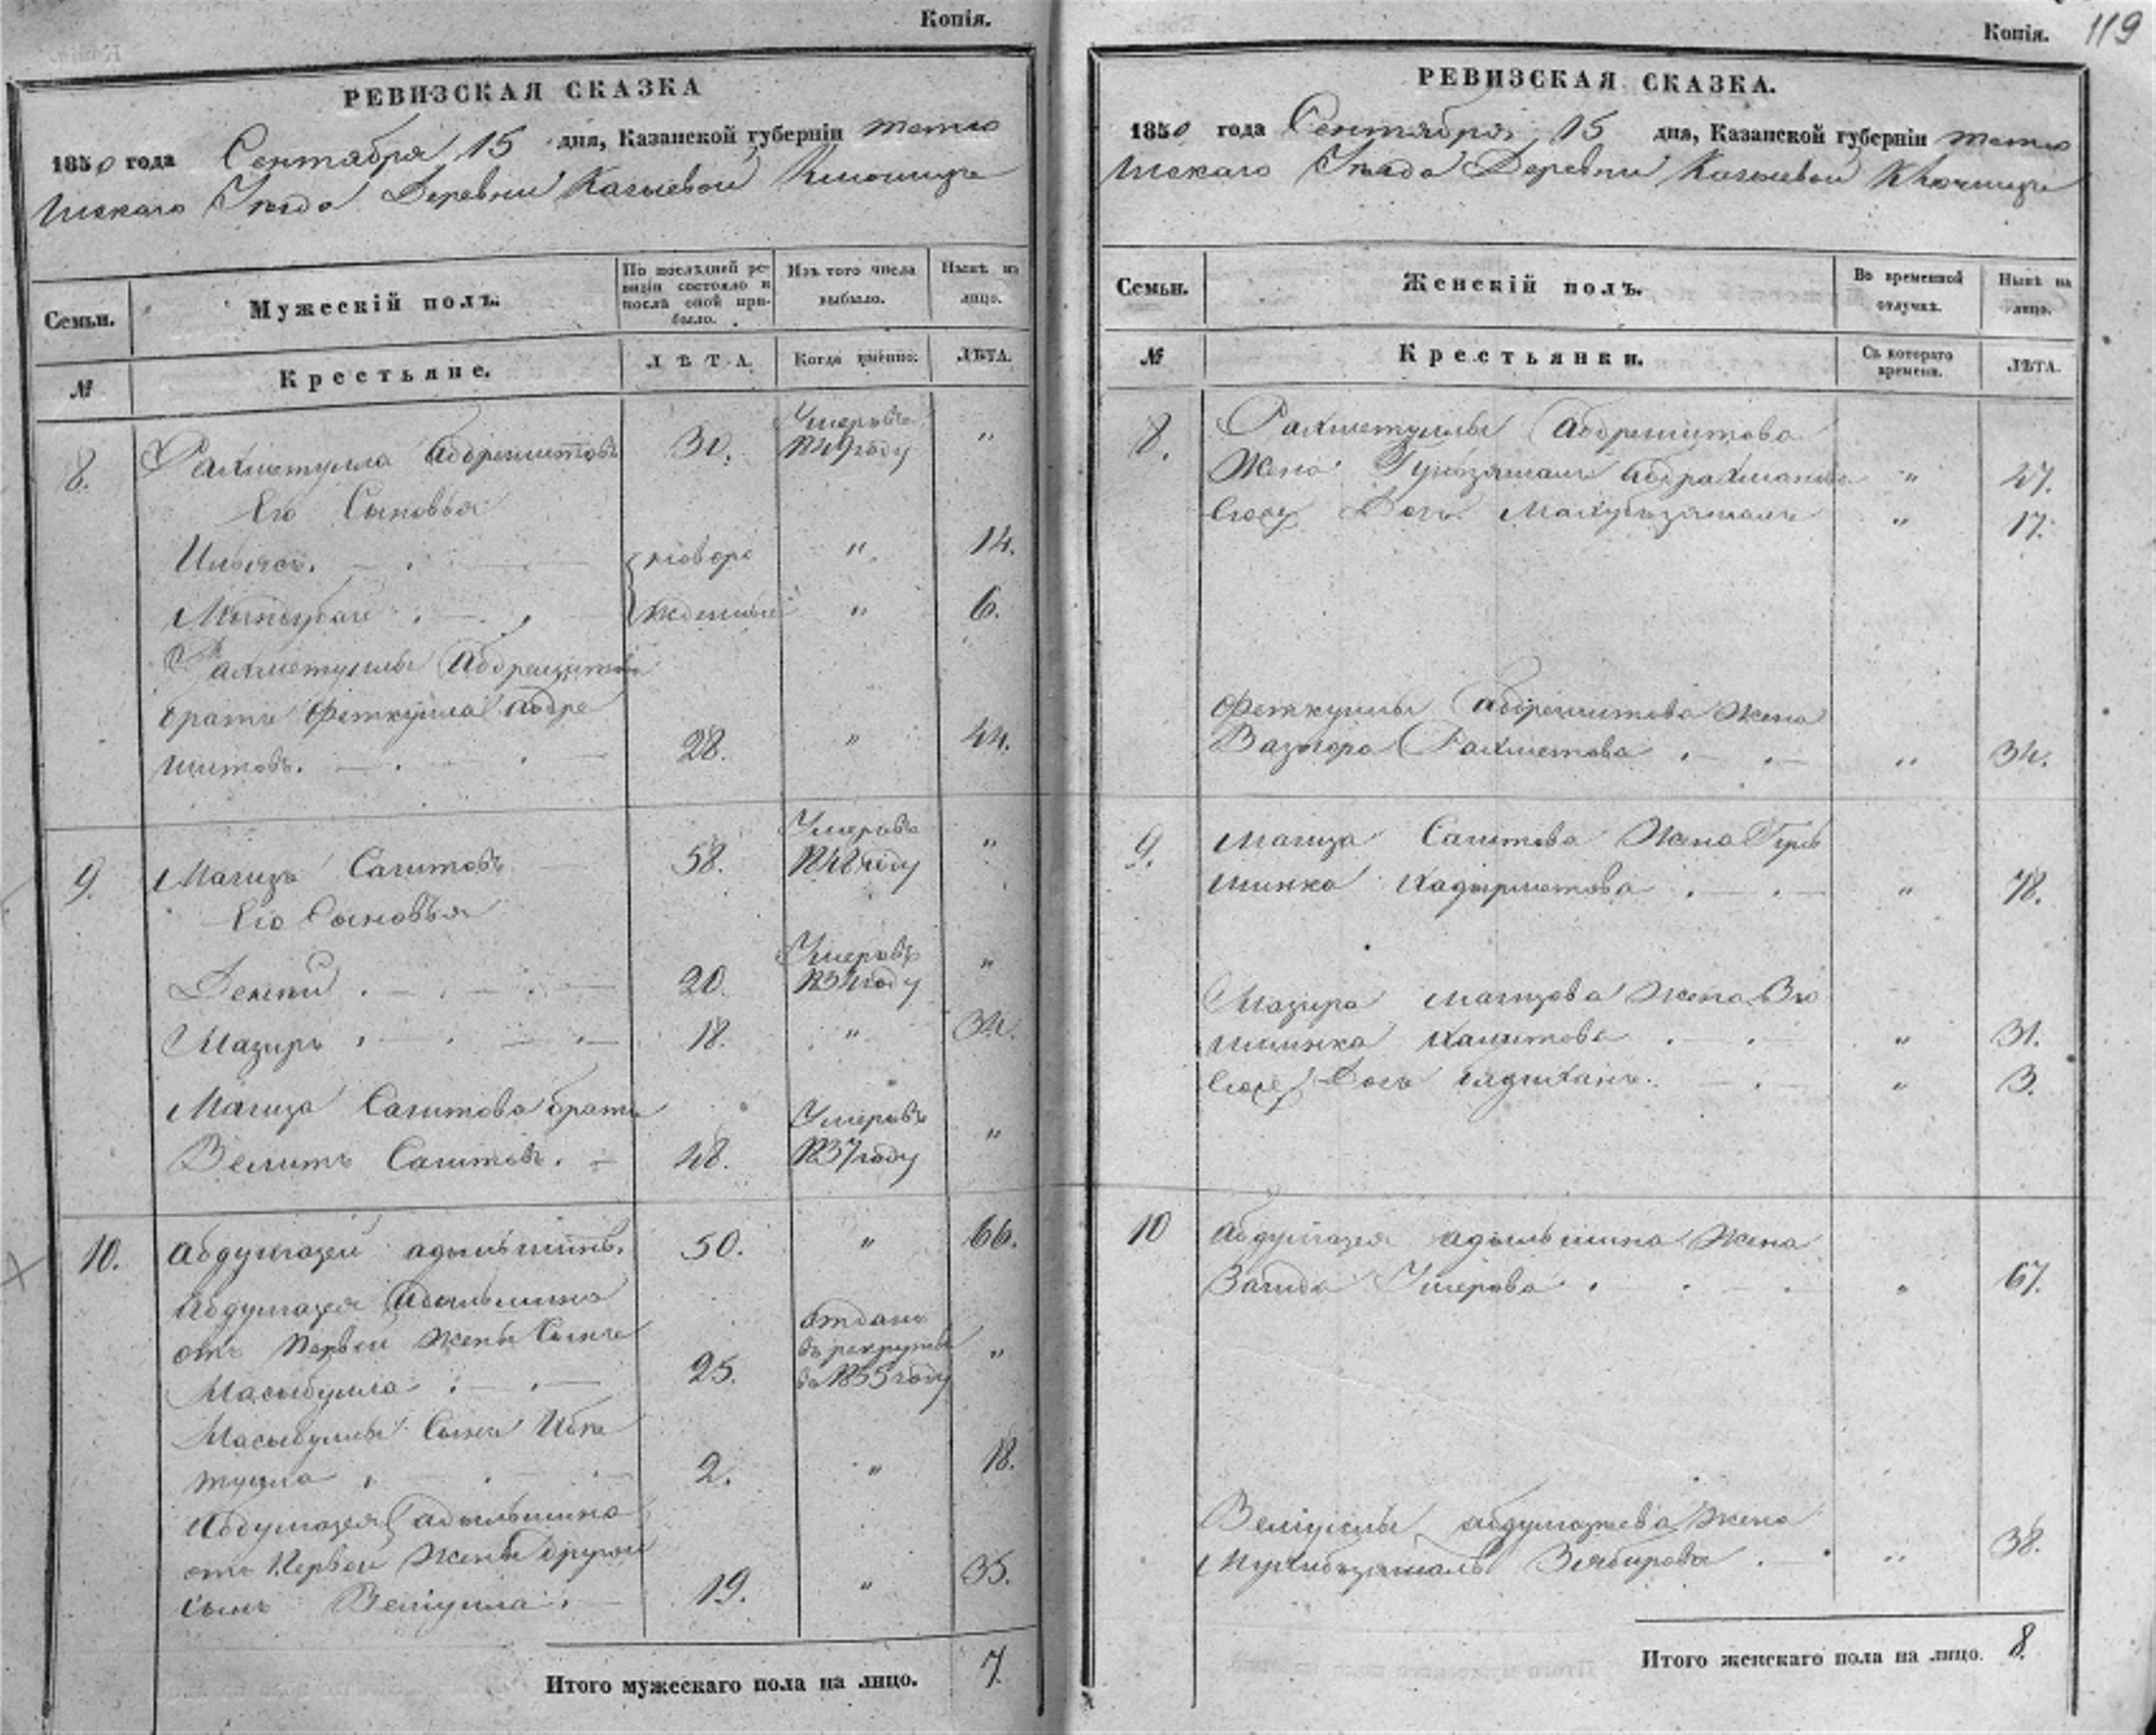 Копія.
РЕВИЗСКАЯ СКАЗКА
1850 года Сентября 15 дня, Казанской губерніи Тетю
шскаго Уезда Деревни
Семьи.
Мужескій полъ.
По послѣдней ре-
визіи состояло и
послѣ оной при-
было.
Изъ того числа
выбыло.
Нынѣ на
лицо.
№
Крестьяне.
ЛѢТА.
Когда именно.
ЛѢТА.
8. Рахметулла Абдрешитовъ 30. Умеръ въ 1849 году "
Его Сыновья
Ильясъ. новоро " 14.
жденные " 6.
Рахметуллы Абдрешитова
братъ Феткулла Абдре
шитовъ. 28. " 44.
9. Магизъ Сагитовъ 58. Умеръ въ 1848 году "
Его Сыновья
20. Умеръ въ "
Мазиръ 18. " 34.
Магиза Сагитова братъ
Велитъ Сагитовъ. 48. Умеръ въ 1837 году "
10. Абдулгазей Адильшинъ. 50. " 66.
Абдулгазея Адильшина
отъ Первой жены Сынъ
Масыбулла 25. Отданъ въ рекруты въ 1835 году "
Масыбуллы Сынъ Ибя
тулла 2. " 18.
Абдулгазея Адильшина
отъ Первой жены другой
сынъ Велиулла. 19. " 35.
Итого мужескаго пола на лицо. 7.
Копія. 119
РЕВИЗСКАЯ СКАЗКА.
1850 года Сентября 15 дня, Казанской губерніи Тетю
шскаго Уезда Деревни
Семьи.
Женскій полъ.
Во временной
отлучкѣ.
Нынѣ на
лицо.
№
Крестьянки.
Съ котораго
времени.
ЛѢТА.
8. Рахметуллы Абдрешитова
Жена " 47.
Дочь " 17.
Феткуллы Абдрешитова Жена
Вазира Рахметова " 34.
9. Магиза Сагитова Жена Гуль
шинка " 78.
Мазира Магизова Жена Би
" 31.
Дочь " 3.
10 Абдулгазея Адильшина Жена
Загида Умерова " 67.
Велиуллы Абдулгазеева Жена
Зябирова " 38.
Итого женскаго пола на лицо. 8.